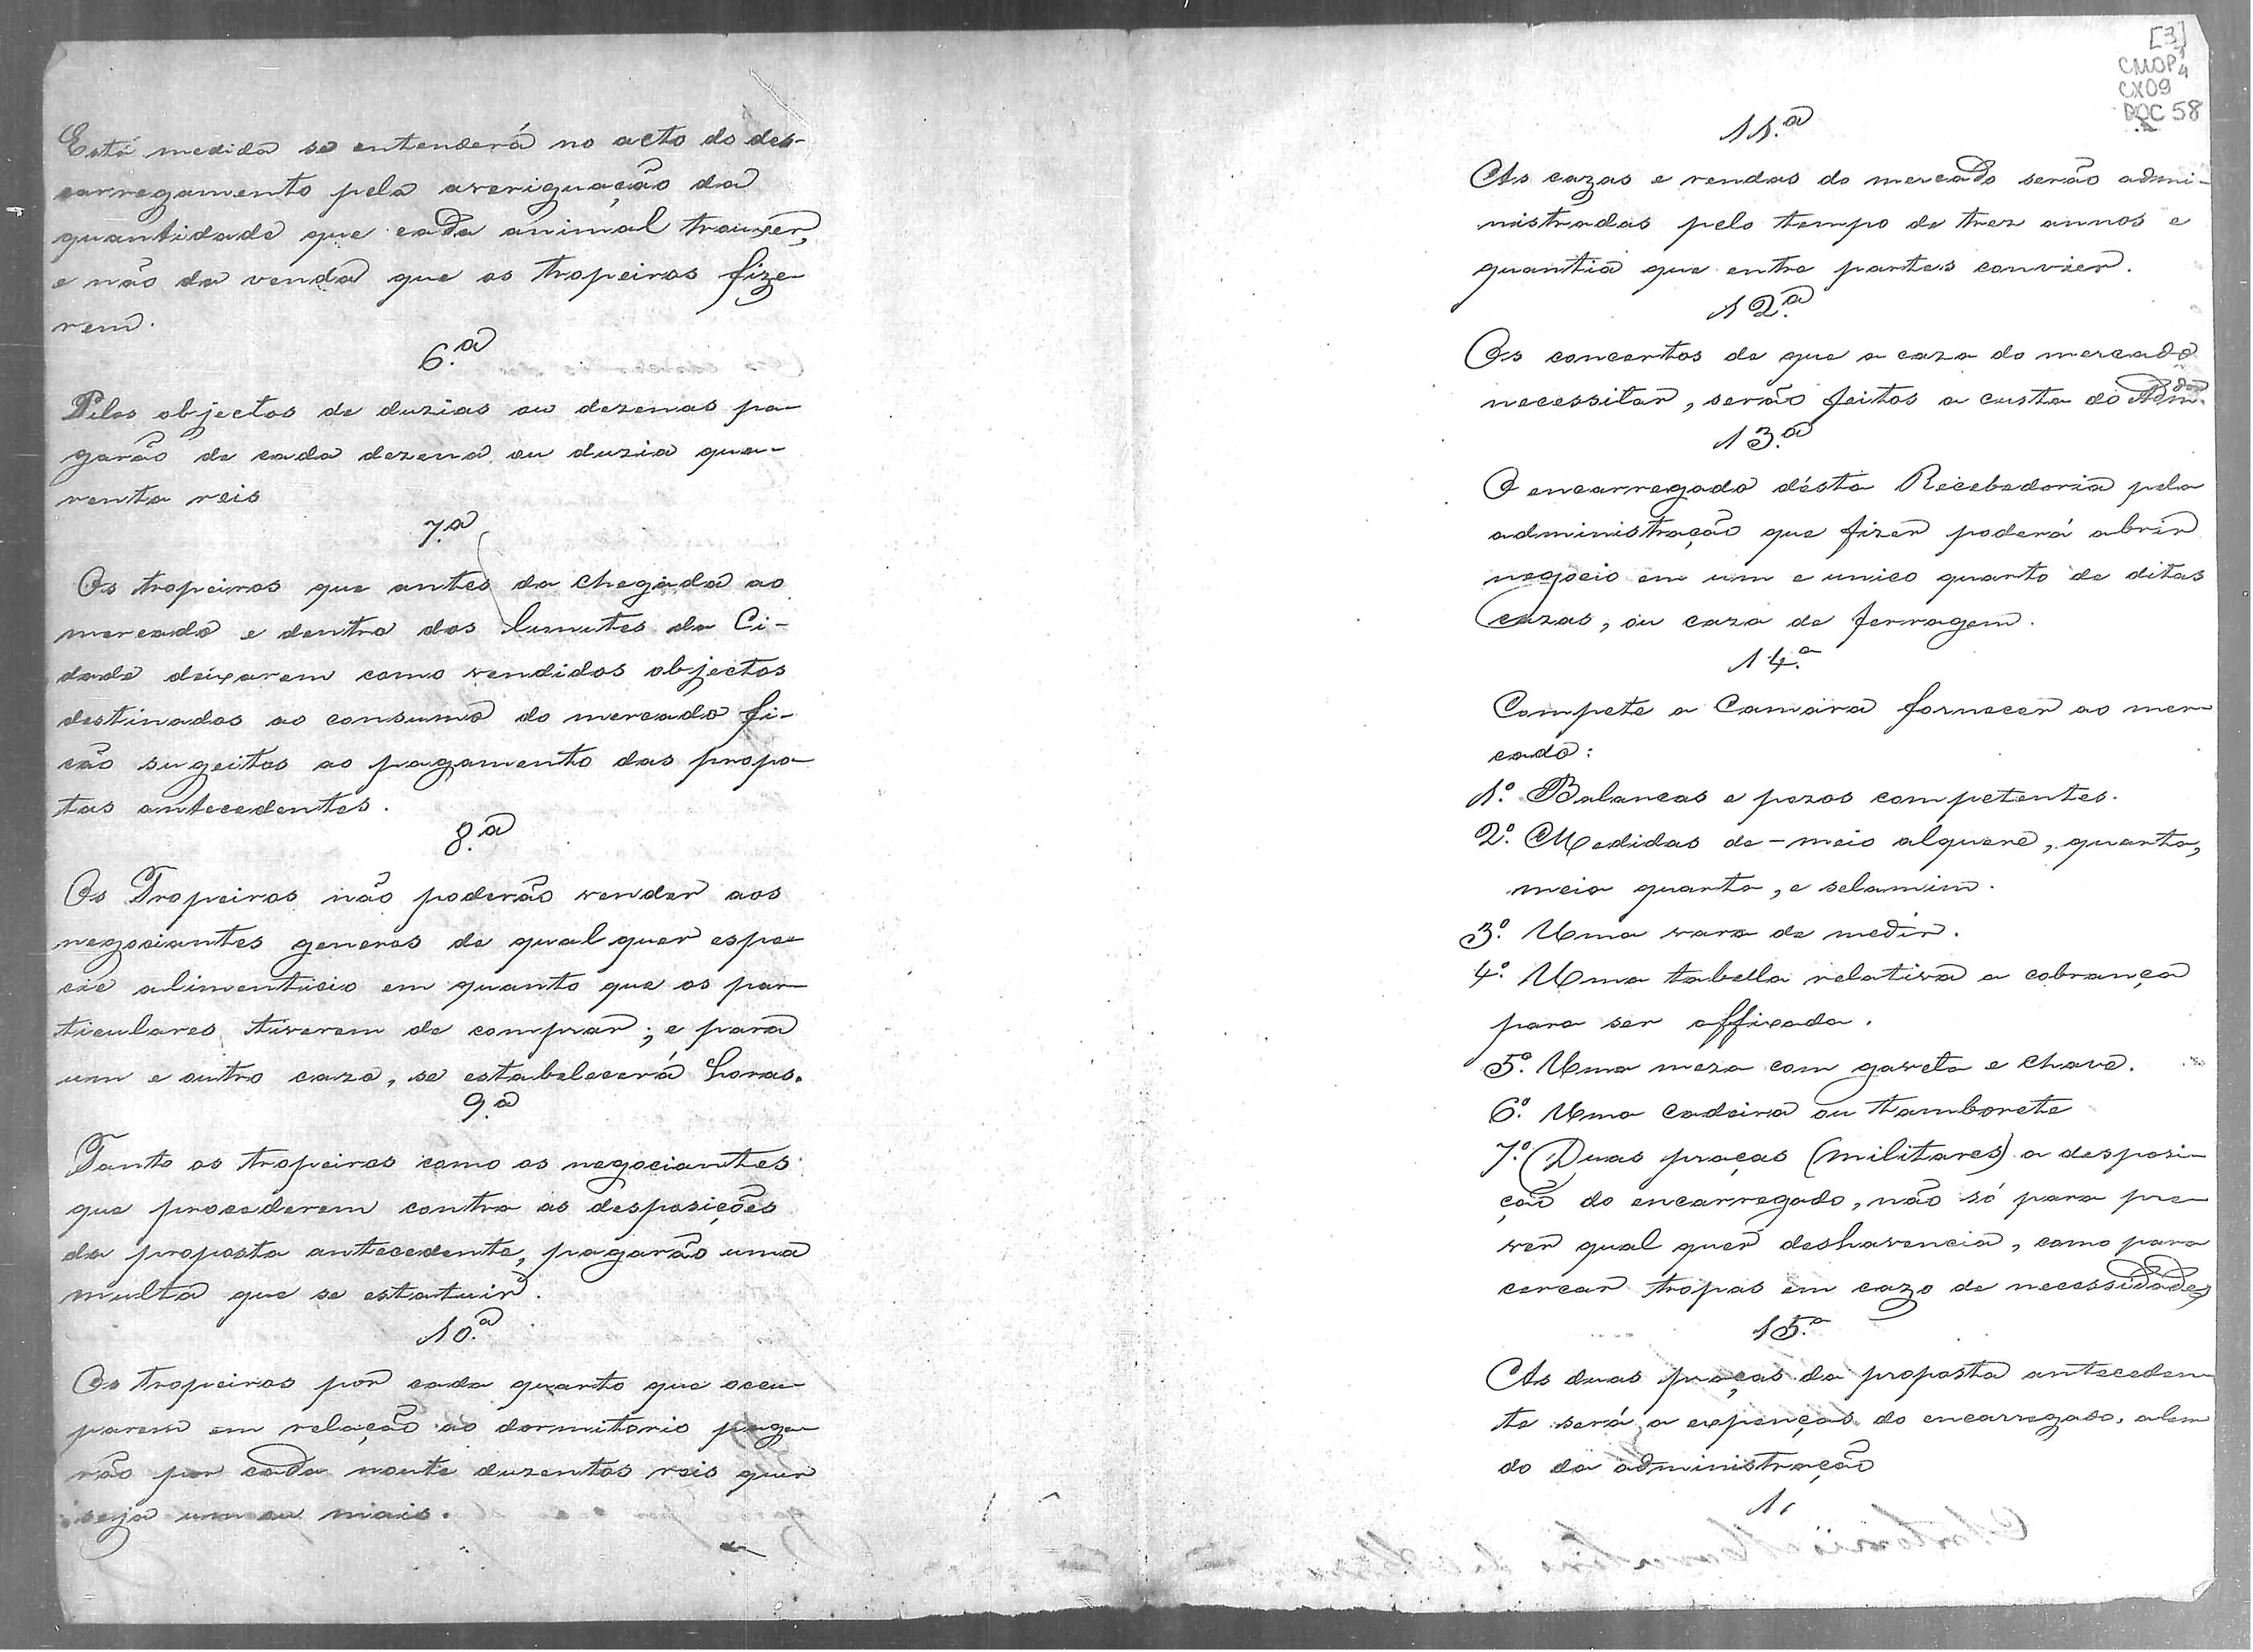 Esta medida se entenderá no acto do des-
carregamento pela averiguação da
quantidade que cada animal trouxer,
e não da venda que os tropeiros fize
rem.
6.a
Pelos objectos de duzias ou dezenas pa-
garão de cada dezena ou duzia qua-
renta reis
7.a
Os tropeiros que antes da chegada ao
mercado e dentro dos limites da Ci-
dade deixarem como vendidos objectos
destinados ao consumo do mercado fi-
cão sugeitos ao pagamento das propo
tas antecedentes.
8.a
Os Tropeiros não poderão vender aos
negociantes generos de qual quer espe
cie alimenticio em quanto que os par
ticulares tiverem de comprar; e para
um e outro cazo, se estabelecerá horas.
9.a
Tanto os tropeiros como os negociantes
que procederem contra as desposições
da proposta antecedente, pagarão uma
multa que se estatuir.
10.a
Os tropeiros por cada quarto que occu
parem em relação ao dormitorio paga
rão por cada noute duzentos reis quer
seja um ou mais.
[3]
CMOP
CX09
DOC 58
11.a
As cazas e rendas do mercado serão admi-
nistradas pelo tempo de trez annos e
quantia que entre partes convier.
12.a
Os concertos de que a caza do mercado
necessitar, serão feitos a custa do Adm.dor
13.a
O encarregado désta Recebedoria pela
administração que fizer poderá abrir
negocio em um e unico quarto de ditas
cazas, ou caza de ferragem.
14.a
Compete a Camara fornecer ao mer
cado:
1.o Balancas e pezos competentes.
2.o Medidas de-meio alquere, quarta,
meia quarta, e selamim.
3.o Uma vara de medir.
4.o Uma tabella relativa a cobrança
para ser affixada.
5.o Uma meza com gaveta e chave.
6.o Uma cadeira ou tamborete
7.o Duas praças (militares) a desposi
ção do encarregado, não só para pre
ver qual quer deshavencia, como para
cercar tropas em cazo de necessidade
15.a
As duas praças da proposta anteceden
te será a expenças do encarregado, alem
do da administração